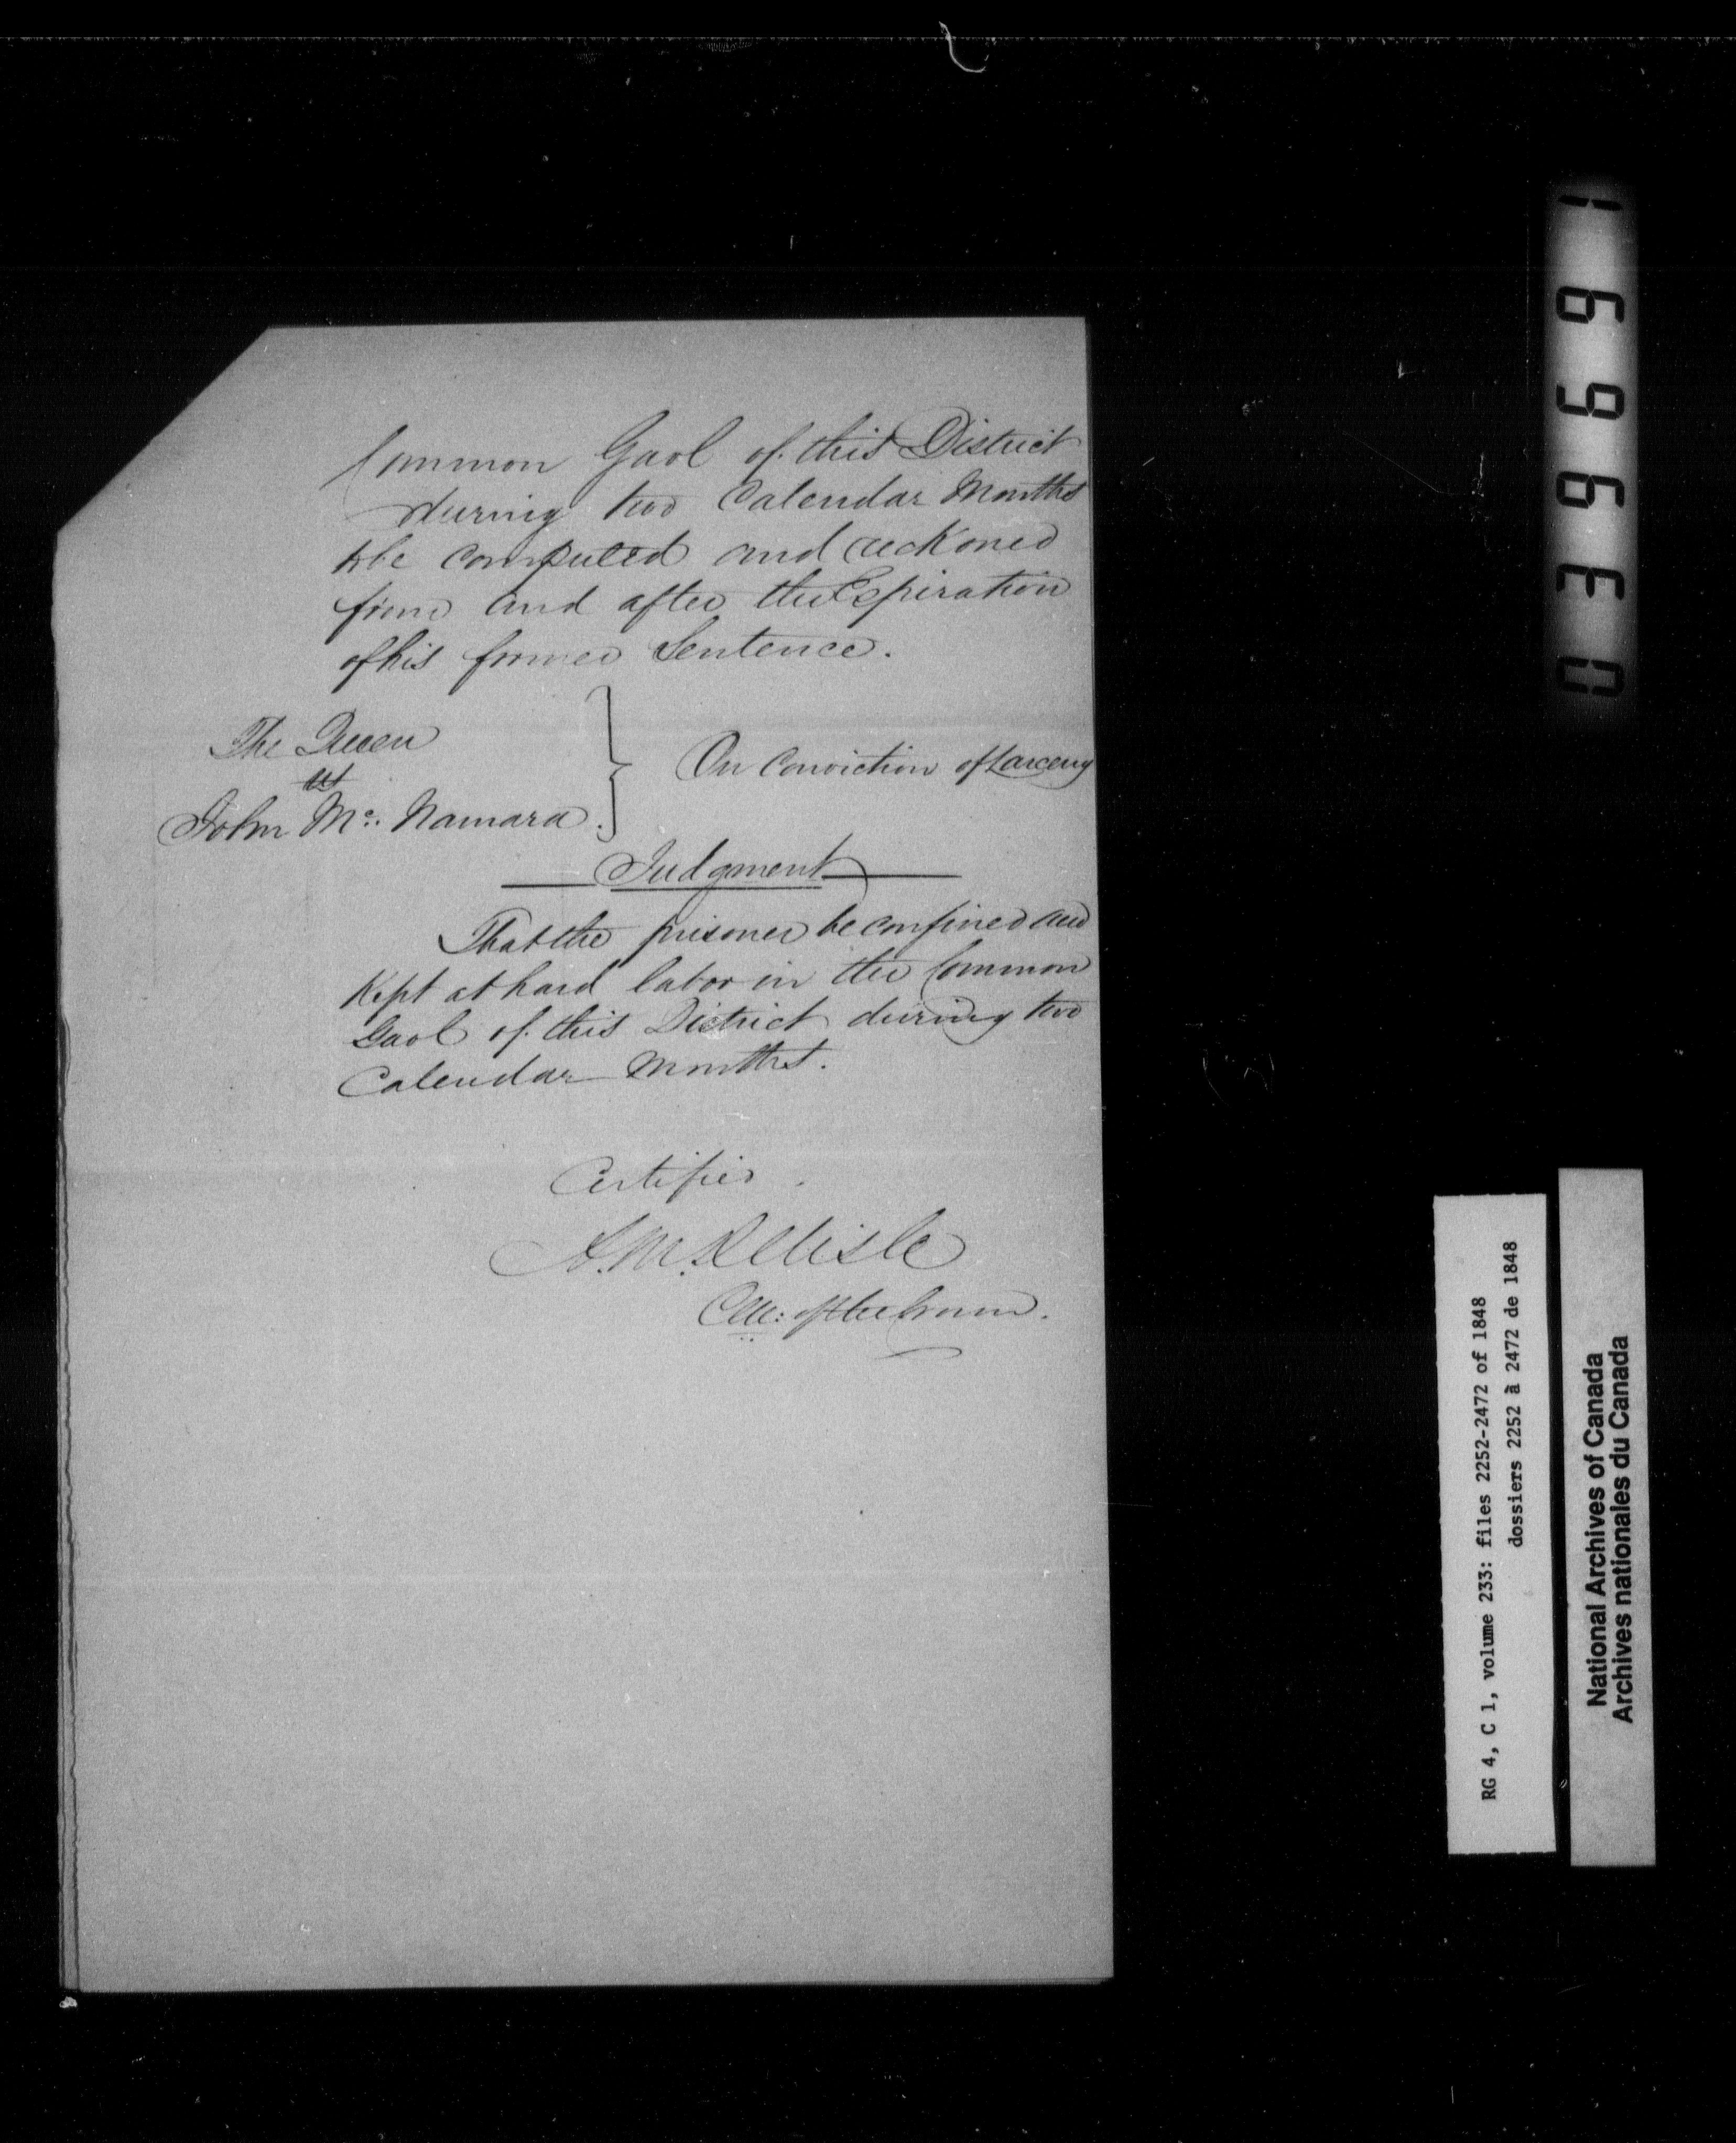 Common Gaol of this District
during two Calendar Months
to be computed and reckoned
from and after the Expiration
of his former Sentence.
The Queen
vs
John Mc. Namara.
On Conviction of Larceny
Judgment
That the prisoner be confined and
Kept at hard labor in the Common
Gaol of this District during two
Calendar Months.
Certified.
A. M. Delisle
Clk: of the Crown.
039691
RG 4, C 1, volume 233: files 2252-2472 of 1848
dossiers 2252 à 2472 de 1848
National Archives of Canada
Archives nationales du Canada